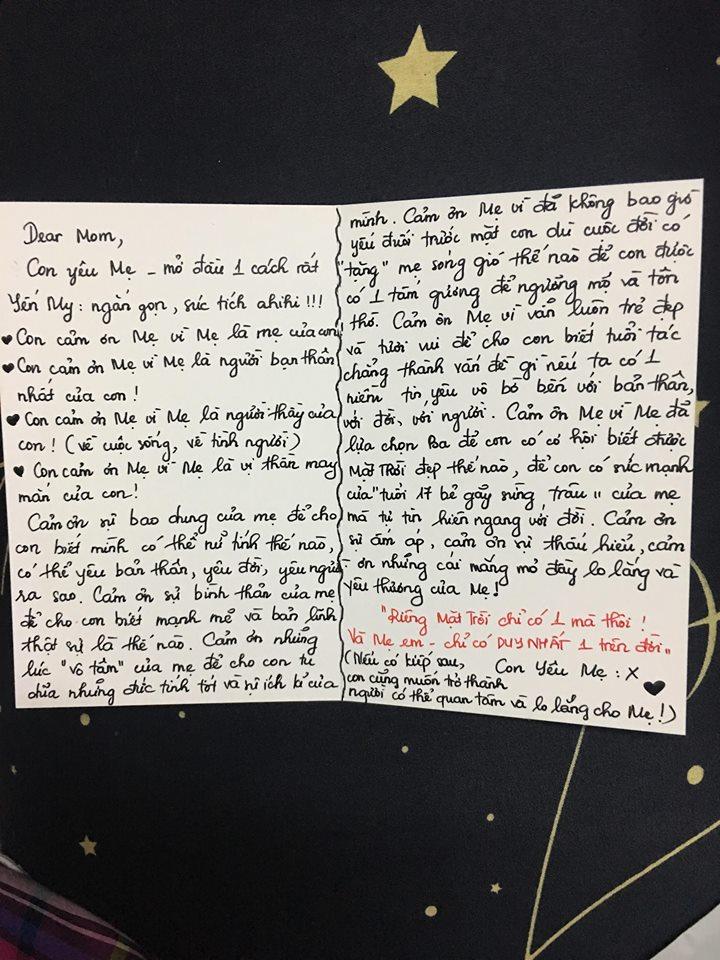 Dear Mom,
Con yêu Mẹ - mở đầu 1 cách rất
Yến My: ngắn gọn, súc tích ahihi!!!
♥ Con cảm ơn Mẹ vì Mẹ là mẹ của con!
♥ Con cảm ơn Mẹ vì Mẹ là người bạn thân
nhất của con!
♥ Con cảm ơn Mẹ vì Mẹ là người thầy của
con! (về cuộc sống, về tình người)
♥ Con cảm ơn Mẹ vì Mẹ là vị thần may
mắn của con!
Cảm ơn sự bao dung của mẹ để cho
con biết mình có thể nữ tính thế nào,
có thể yêu bản thân, yêu đời, yêu người
ra sao. Cảm ơn sự bình thản của mẹ
để cho con biết mạnh mẽ và bản lĩnh
thật sự là thế nào. Cảm ơn những
lúc "vô tâm" của mẹ để cho con từ
những đức tính tốt và sự ích kỉ của
mình. Cảm ơn Mẹ vì đã không bao giờ
yếu đuối trước mặt con dù cuộc đời có
"tặng" mẹ sóng gió thế nào để con được
có 1 tấm gương để ngưỡng mộ và tôn
thờ. Cảm ơn Mẹ vì vẫn luôn trẻ đẹp
và tươi vui để cho con biết tuổi tác
chẳng thành vấn đề gì nếu ta có 1
niềm tin, yêu vô bờ bến với bản thân,
với đời, với người. Cảm ơn Mẹ vì Mẹ đã
lựa chọn Ba để con có cơ hội biết được
Mặt Trời đẹp thế nào, để con có sức mạnh
của "tuổi 17 bẻ gãy sừng trâu" của mẹ
mà tự tin hiên ngang với đời. Cảm ơn
sự ấm áp, cảm ơn sự thấu hiểu, cảm
ơn những cái mắng mỏ đầy lo lắng và
yêu thương của Mẹ!
"Riêng Mặt Trời chỉ có 1 mà thôi!
Và Mẹ em - chỉ có DUY NHẤT 1 trên đời"
(Nếu có kiếp sau, Con Yêu Mẹ :X
con cũng muốn trở thành ♥
người có thể quan tâm và lo lắng cho Mẹ!)